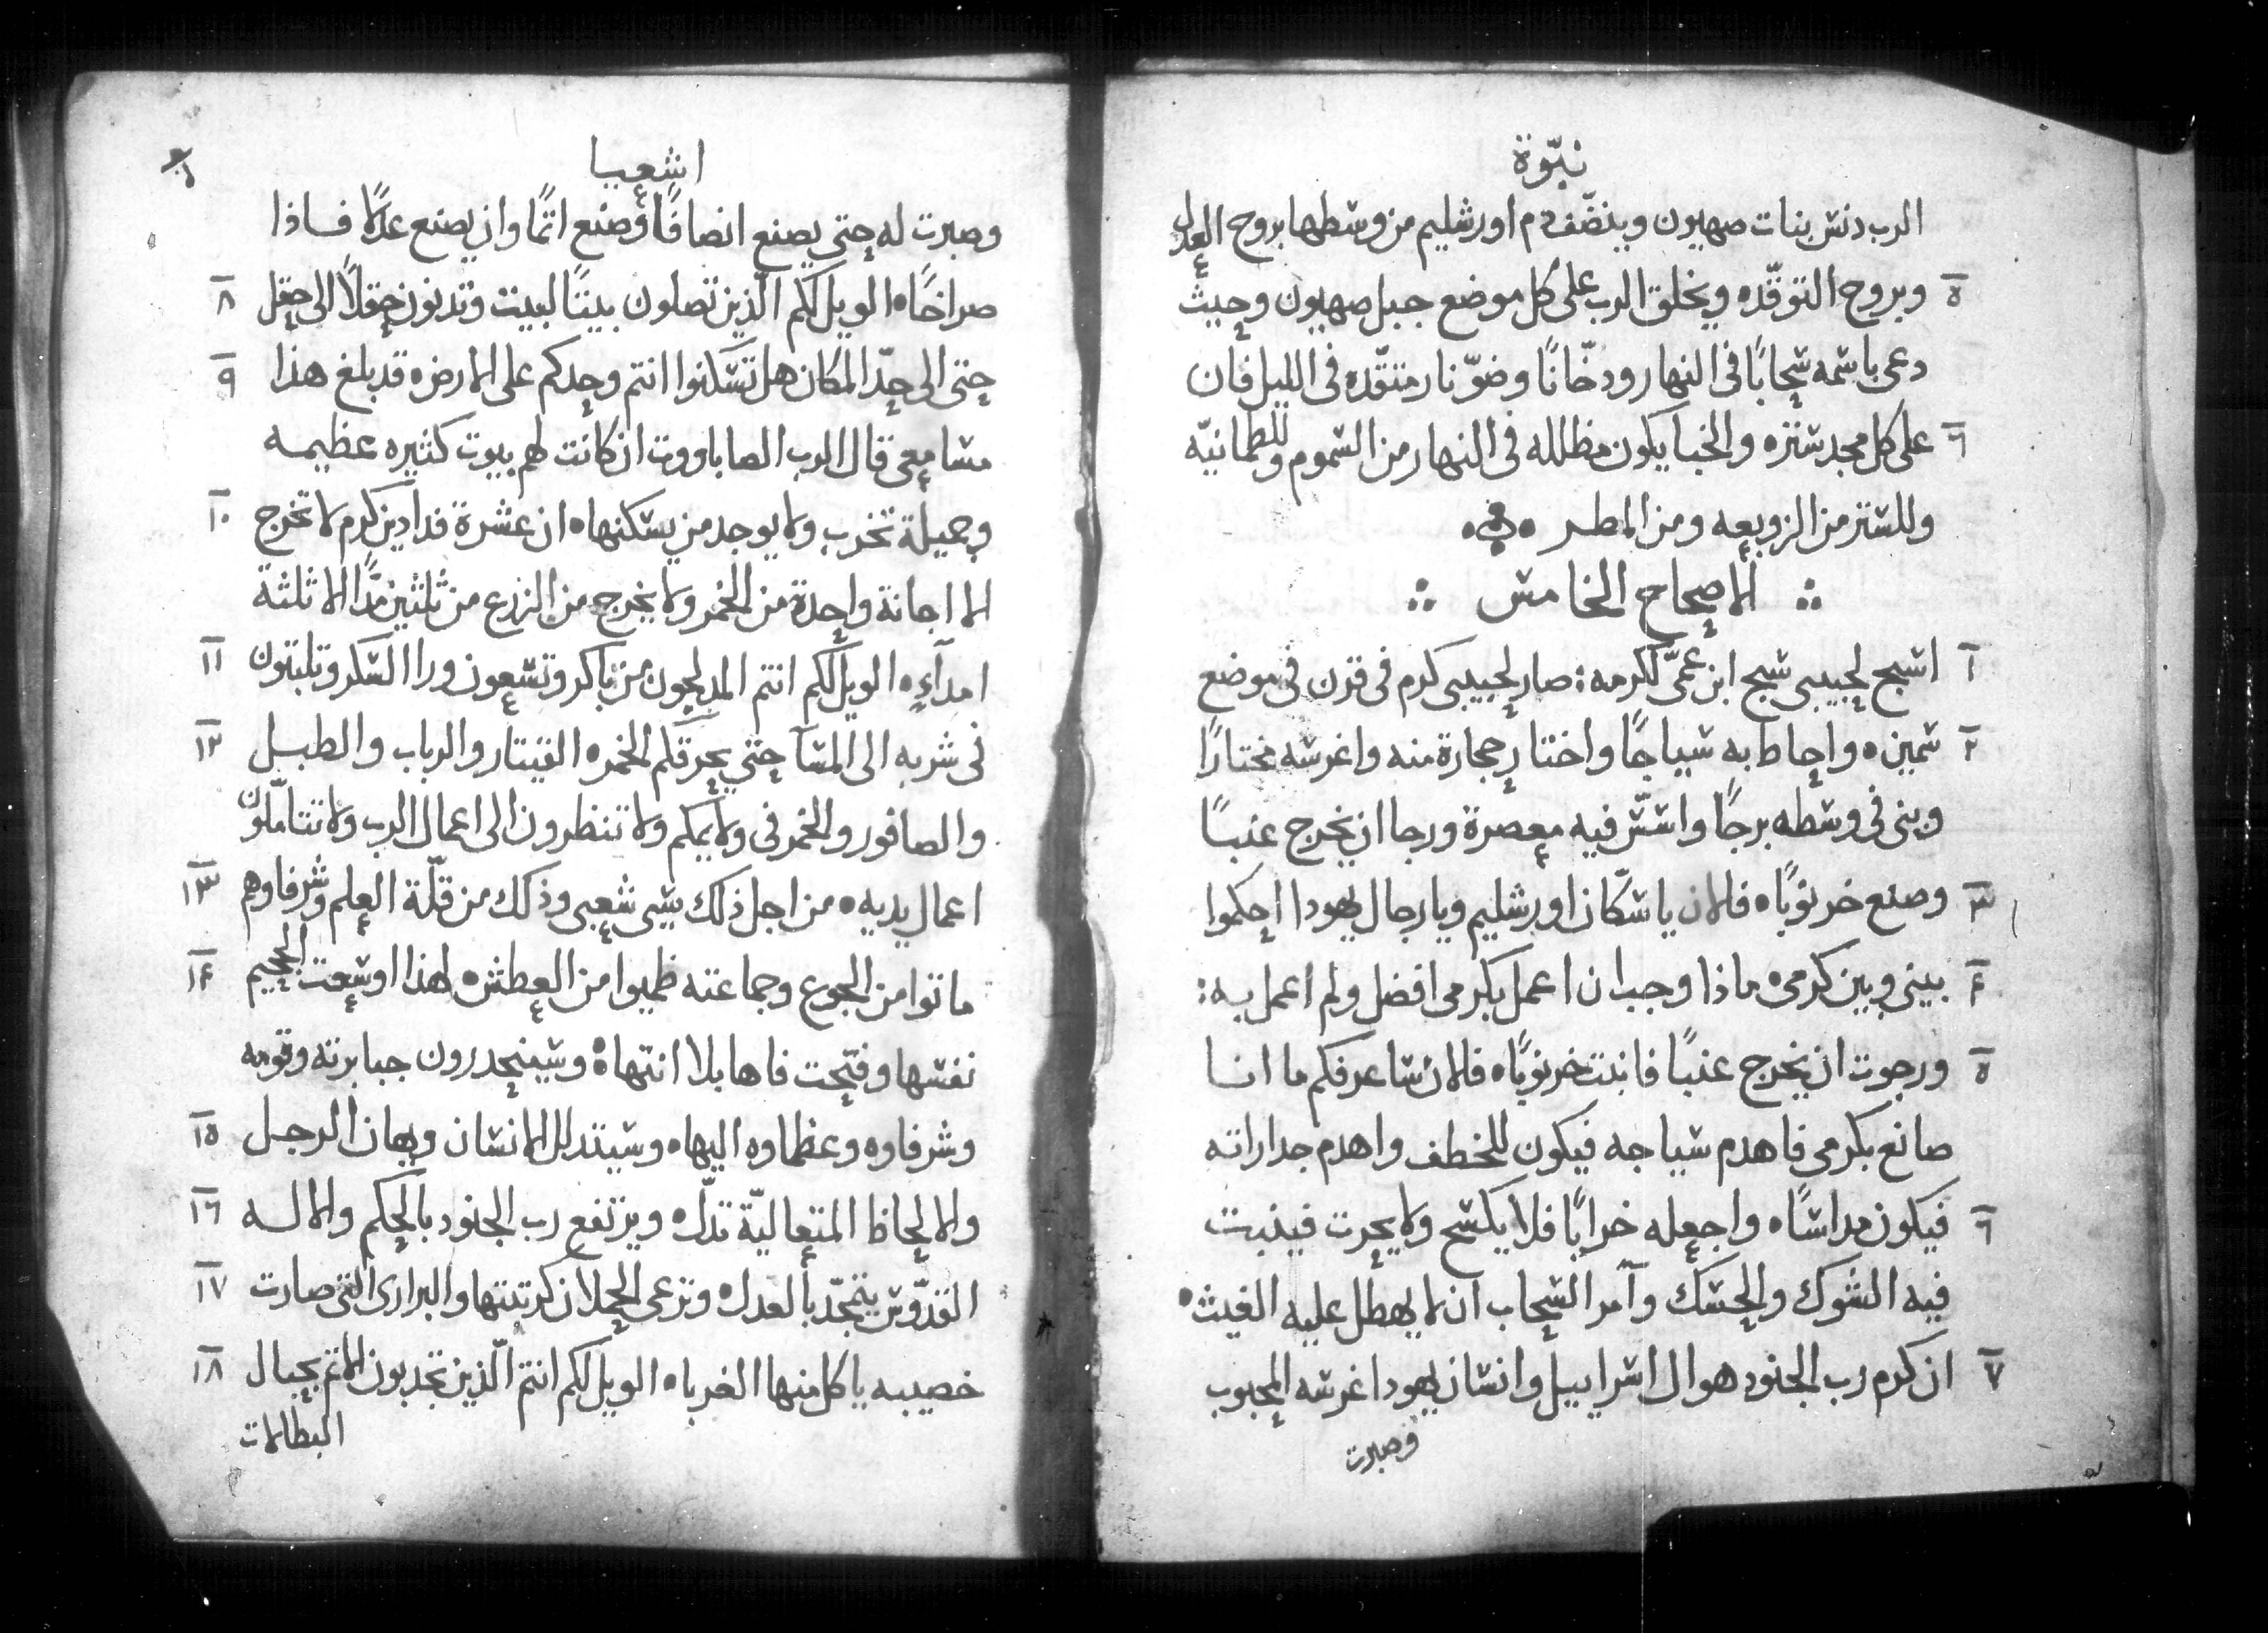 نبّوة
الرب دنس بنات صهيون وينضّف دم اورشليم من وسطها بروح العدل
٥ وبروح التوقّده ويخلق الرب على كل موضع جبل صهيون وحيث
دعى باسمه سحابًا في النهار ودخّانًا وضوّ نار متقّده في الليل فان
٦ على كل مجد ستره والخبا يكون مظلله في النهار من السموم وللطمانيّه
وللستر من الزوبعه ومن المطر
الاصحاح الخامس
١ اسبح لحبيبى سبح ابن عمّى لكرمه: صار لحبيبى كرم فى قرن فى موضع
٢ سمين ه واحاط به سياجًا واختار حجارة منه واغرسه مختارًا
وبنى فى وسطه برجًا واسّس فيه معصرة ورجا ان يخرج عنبًا
٣ وصنع خرنوبًا ه فالان يا سكّان اورشليم ويا رجال يهودا احكموا
۴ بينى وبين كرمى ه ماذا وجب ان اعمل بكرمى افضل ولم اعمل به:
٥ ورجوت ان يخرج عنبًا فانبت خرنوبًا ه فالان ساعرفكم ما انا
صانع بكرمى فاهدم سياجه فيكون للخطف واهدم جداراته
٦ فيكون مداسًا ه واجعله خرابًا فلا يكسح ولا يحرث فينبت
فيه الشوك والحسك وآمر السحاب ان لا يهطل عليه الغيث ه
٧ ان كرم رب الجنود هو ال اسراييل وانسان يهودا غرسه المحبوب
وصبرت
اشعيا
وصبرت له حتي يصنع انصافًا وصنع اثمًا وان يصنع عدلًا فاذا
٨ صراخًا ه الويل لكم الّذين تصلون بيتًا لبيت وتدنون حقلًا الى حقل
٩ حتى الى حدّ المكان هل تسكنوا انتم وحدكم على الارض ه قد بلغ هذا
مسامعى قال الرب الصاباووت ان كانت لهم بيوت كثيره عظيمه
١٠ وجميلة تخرب ولا يوجد من يسكنها ه ان عشرة فدادين كرم لا تخرج
الا اجانة واحدة من الخمر ولا يخرج من الزرع من ثلثين مدًّا الا ثلثة
١١ امدآءٍ ه الويل لكم انتم المدلجون من باكر وتسعون ورا السكر وتلبثون
١٢ فى شربه الى المسآ حتي يحرقكم الخمر ه القيتار والرباب والطبل
والصافور والخمر فى ولايمكم ولا تنظرون الى اعمال الرب ولا تتاملّون
١٣ اعمال يديه ه من اجل ذلك سبى شعبى وذلك من قلّة العلم وشرفاوهم
١۴ ماتوا من الجوع وجماعته ظميوا من العطش ه لهذا اوسعت الجحيم
نفسها وفتحت فاها بلا انتهاة وسينحدرون جبابرته وقومه
١٥ وشرفاوه وعظماوه اليها ه وسيتدلل الانسان ويهان الرجل
١٦ والالحاظ المتعاليّة تدلّ ه ويرتفع رب الجنود بالحكم والاله
١٧ القدّوس يتمجّد بالعدل ه وترعى الحملان كرتبتها والبرارى التى صارت
١٨ خصيبه ياكل منها الغربا ه الويل لكم انتم الّذين تجدبون الاثم بحبال
البطالات